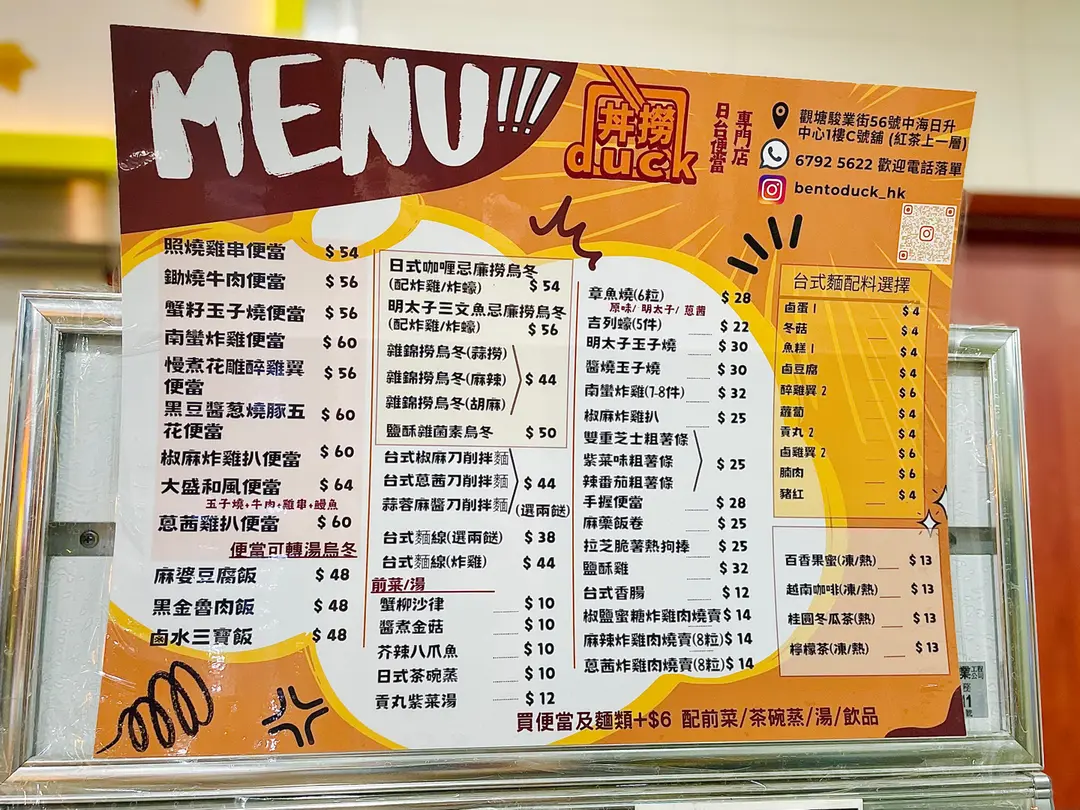 MENU!!!
丼撈
duck
日台便當
專門店
觀塘駿業街56號中海日升
中心1樓C號舖 (紅茶上一層)
6792 5622 歡迎電話落單
bentoduck_hk
照燒雞串便當 $ 54
鋤燒牛肉便當 $ 56
蟹籽玉子燒便當 $ 56
南蠻炸雞便當 $ 60
慢煮花雕醉雞翼 $ 56
便當
黑豆醬葱燒豚五 $ 60
花便當
椒麻炸雞扒便當 $ 60
大盛和風便當 $ 64
玉子燒+牛肉+雞串+鰻魚
蔥茜雞扒便當 $ 60
便當可轉湯烏冬
麻婆豆腐飯 $ 48
黑金魯肉飯 $ 48
鹵水三寶飯 $ 48
日式咖喱忌廉撈烏冬
(配炸雞/炸蠔) $ 54
明太子三文魚忌廉撈烏冬
(配炸雞/炸蠔) $ 56
雜錦撈烏冬(蒜撈)
雜錦撈烏冬(麻辣) $ 44
雜錦撈烏冬(胡麻)
鹽酥雜菌素烏冬 $ 50
台式椒麻刀削拌麵
台式蔥茜刀削拌麵 $ 44
蒜蓉麻醬刀削拌麵 (選兩餸)
台式麵線(選兩餸) $ 38
台式麵線(炸雞) $ 44
前菜/湯
蟹柳沙律 $ 10
醬煮金菇 $ 10
芥辣八爪魚 $ 10
日式茶碗蒸 $ 10
貢丸紫菜湯 $ 12
章魚燒(6粒) $ 28
原味/ 明太子/ 蔥茜
吉列蠔(5件) $ 22
明太子玉子燒 $ 30
醬燒玉子燒 $ 30
南蠻炸雞(7-8件) $ 32
椒麻炸雞扒 $ 25
雙重芝士粗薯條
紫菜味粗薯條 $ 25
辣番茄粗薯條
手握便當 $ 28
麻藥飯卷 $ 25
拉芝脆薯熱狗捧 $ 25
鹽酥雞 $ 32
台式香腸 $ 12
椒鹽蜜糖炸雞肉燒賣 $ 14
麻辣炸雞肉燒賣(8粒) $ 14
蔥茜炸雞肉燒賣(8粒) $ 14
台式麵配料選擇
鹵蛋 1 $ 4
冬菇 $ 4
魚糕 1 $ 4
鹵豆腐 $ 4
醉雞翼 2 $ 6
蘿蔔 $ 4
貢丸 2 $ 4
鹵雞翼 2 $ 6
腩肉 $ 6
豬紅 $ 4
百香果蜜(凍/熱) $ 13
越南咖啡(凍/熱) $ 13
桂圓冬瓜茶(熱) $ 13
檸檬茶(凍/熱) $ 13
買便當及麵類+$6 配前菜/茶碗蒸/湯/飲品